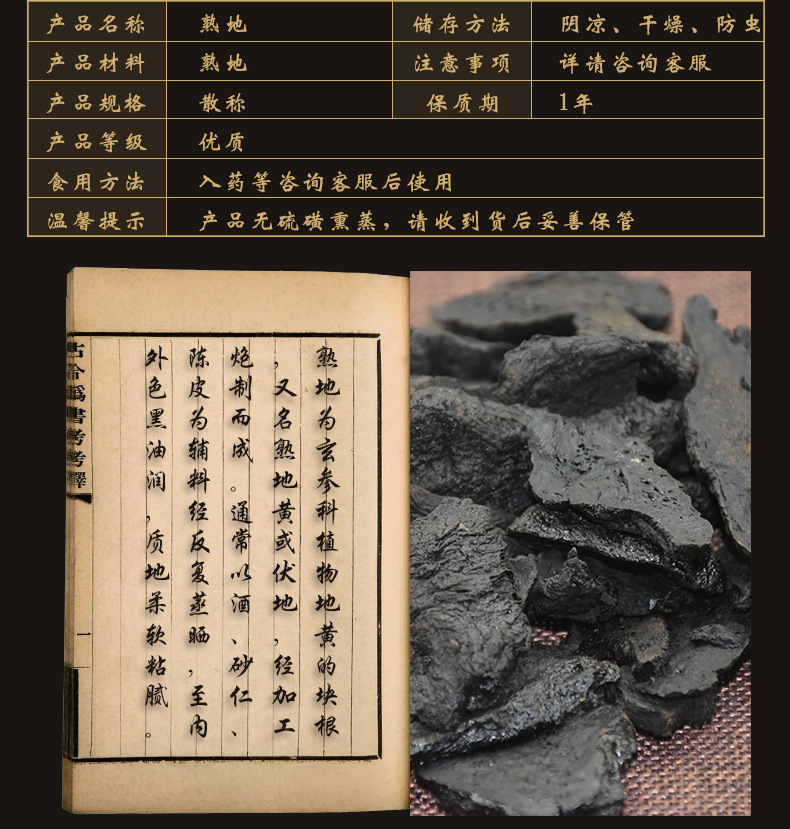 产品名称 熟地 储存方法 阴凉、干燥、防虫
产品材料 熟地 注意事项 详请咨询客服
产品规格 散称 保质期 1年
产品等级 优质
食用方法 入药等咨询客服后使用
温馨提示 产品无硫磺熏蒸，请收到货后妥善保管
熟地为玄参科植物地黄的块根
，又名熟地黄或伏地，经加工
炮制而成。通常以酒、砂仁、
陈皮为辅料经反复蒸晒，至内
外色黑油润，质地柔软粘腻。
古今偽書考考釋
一